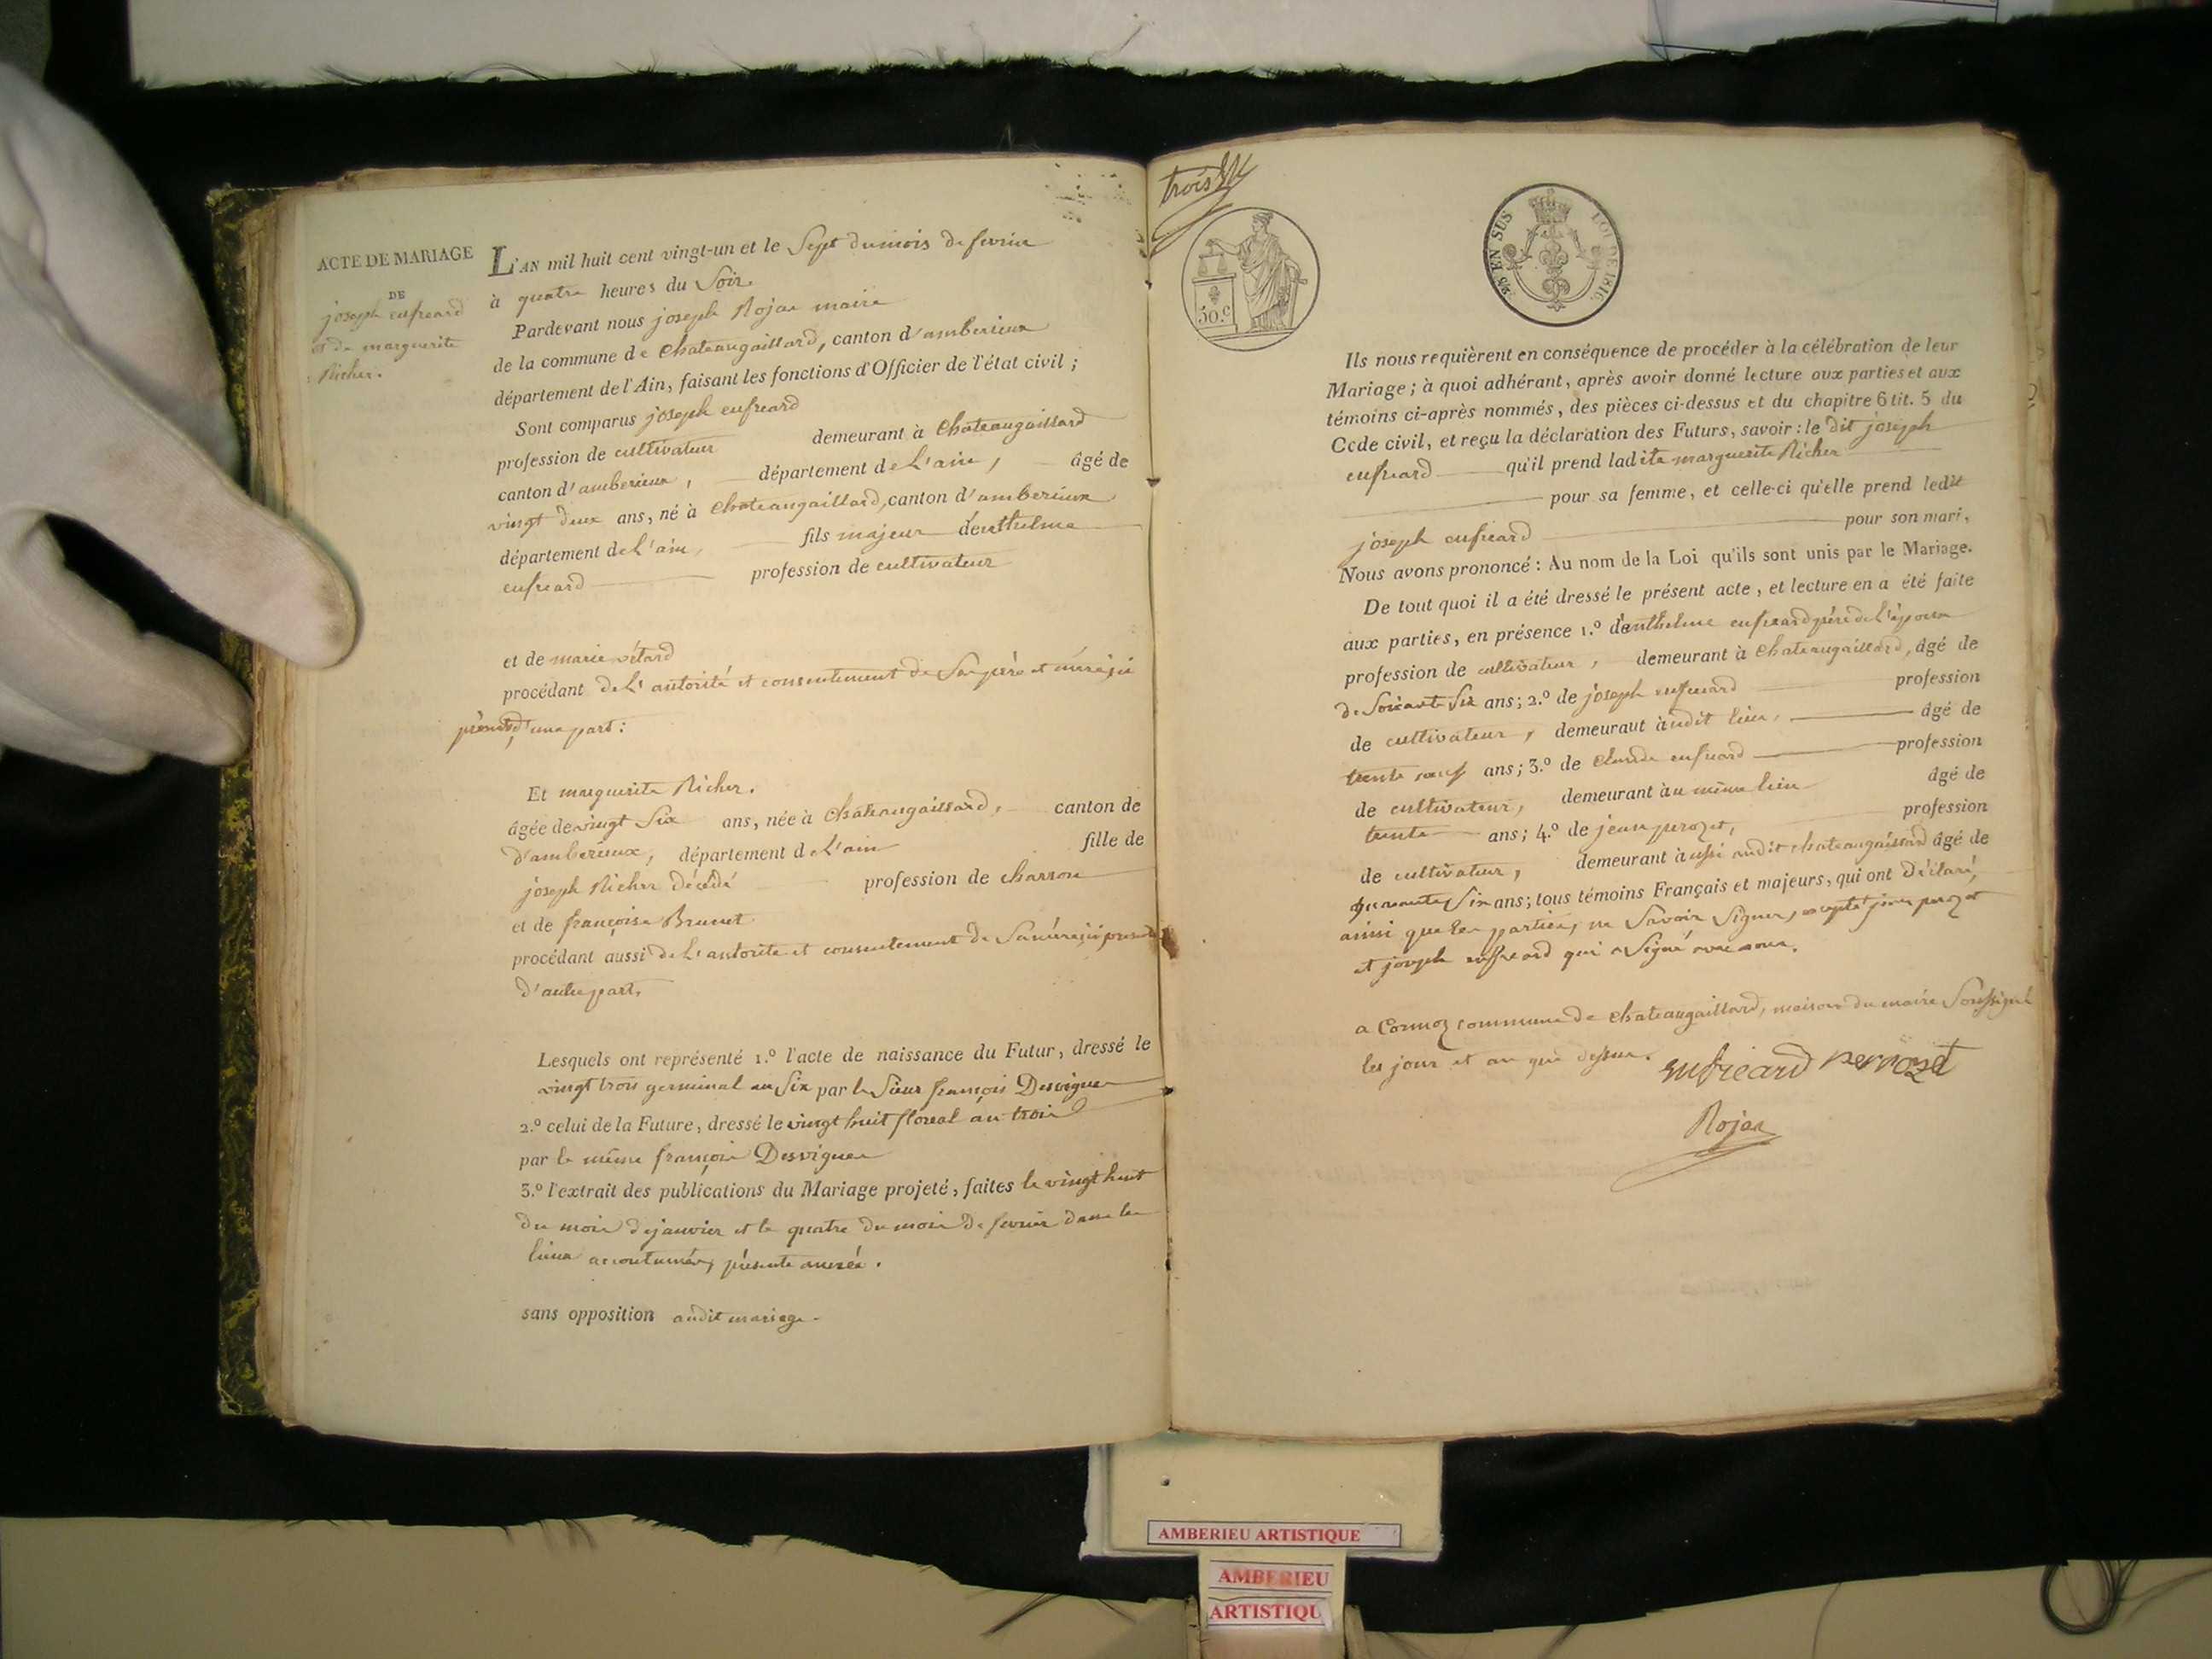 ACTE DE MARIAGE
DE
joseph enfreard
et de marguerite
Richer.
L'AN mil huit cent vingt-un et le Sept du mois de fevrier
à quatre heures du Soir.
Pardevant nous joseph Rojat maire
de la commune de Chateaugaillard, canton d'amberieux
département de l'Ain, faisant les fonctions d'Officier de l'état civil ;
Sont comparus joseph enfreard
profession de cultivateur demeurant à Chateaugaillard
canton d'amberieux, département de L'ain, âgé de
vingt deux ans, né à Chateaugaillard, canton d'amberieux
département de L'ain, fils majeur d'enthelme
enfreard profession de cultivateur
et de marie vétard
procédant de L'autorité et consentement de Ses père et mère ici
présents d'une part :
Et marguerite Richer.
âgée de vingt Six ans, née à chateaugaillard, canton de
d'amberieux, département de L'ain fille de
joseph Richer décédé profession de charron
et de françoise Brunet
procédant aussi de L'autorité et consentement de Sa mère ici présente
d'autre part.
Lesquels ont représenté 1.º l'acte de naissance du Futur, dressé le
vingt trois germinal an Six par le Sieur françois Desvignes
2.º celui de la Future, dressé le vingt huit floreal an trois
par le même françois Desvignes
3.º l'extrait des publications du Mariage projeté, faites le vingt huit
du mois de janvier et le quatre du mois de fevrier dans les
lieux accoutumés, présente année.
sans opposition audit mariage.
trois
50.c
2/5 EN SUS LOI DE 1816.
Ils nous requièrent en conséquence de procéder à la célébration de leur
Mariage ; à quoi adhérant, après avoir donné lecture aux parties et aux
témoins ci-après nommés, des pièces ci-dessus et du chapitre 6 tit. 5 du
Code civil, et reçu la déclaration des Futurs, savoir : le dit joseph
enfreard qu'il prend ladite marguerite Richer
pour sa femme, et celle-ci qu'elle prend ledit
joseph enfreard pour son mari,
Nous avons prononcé : Au nom de la Loi qu'ils sont unis par le Mariage.
De tout quoi il a été dressé le présent acte, et lecture en a été faite
aux parties, en présence 1.º d'enthelme enfreard père de L'époux
profession de cultivateur, demeurant à Chateaugaillard, âgé de
de Soixante Six ans ; 2.º de joseph enfreard profession
de cultivateur, demeurant audit lieu, âgé de
trente neuf ans ; 3.º de Claude enfreard profession
de cultivateur, demeurant au même lieu âgé de
trente ans ; 4.º de jean perozet, profession
de cultivateur, demeurant aussi audit chateaugaillard âgé de
quarante Six ans ; tous témoins Français et majeurs, qui ont déclaré,
ainsi que les parties, ne Savoir Signer, excepté jean perozet
et joseph enfreard qui a Signé avec nous.
a Cormoz commune de chateaugaillard, maison du maire Soussigné
les jour et an que dessus. enfreard perrozet
Rojat
AMBERIEU ARTISTIQUE
AMBERIEU
ARTISTIQU